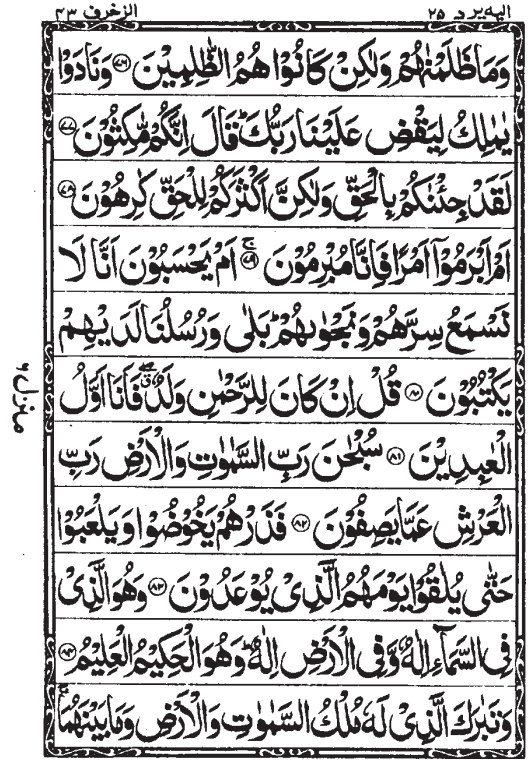 الزخرف ٤٣
اليه يرد ٢٥
وَمَا ظَلَمْنٰهُمْ وَلٰكِنْ كَانُوْا هُمُ الظّٰلِمِيْنَ ۝٧٦ وَنَادَوْا
يٰمٰلِكُ لِيَقْضِ عَلَيْنَا رَبُّكَ ؕ قَالَ اِنَّكُمْ مّٰكِثُوْنَ ۝٧٧
لَقَدْ جِئْنٰكُمْ بِالْحَقِّ وَلٰكِنَّ اَكْثَرَكُمْ لِلْحَقِّ كٰرِهُوْنَ ۝٧٨
اَمْ اَبْرَمُوْۤا اَمْرًا فَاِنَّا مُبْرِمُوْنَ ۝٧٩ۚ اَمْ يَحْسَبُوْنَ اَنَّا لَا
نَسْمَعُ سِرَّهُمْ وَنَجْوٰىهُمْ ؕ بَلٰى وَرُسُلُنَا لَدَيْهِمْ
يَكْتُبُوْنَ ۝٨٠ قُلْ اِنْ كَانَ لِلرَّحْمٰنِ وَلَدٌ ۖۗ فَاَنَا اَوَّلُ
الْعٰبِدِيْنَ ۝٨١ سُبْحٰنَ رَبِّ السَّمٰوٰتِ وَالْاَرْضِ رَبِّ
الْعَرْشِ عَمَّا يَصِفُوْنَ ۝٨٢ فَذَرْهُمْ يَخُوْضُوْا وَيَلْعَبُوْا
حَتّٰى يُلٰقُوْا يَوْمَهُمُ الَّذِيْ يُوْعَدُوْنَ ۝٨٣ وَهُوَ الَّذِيْ
فِى السَّمَآءِ اِلٰهٌ وَّفِى الْاَرْضِ اِلٰهٌ ؕ وَهُوَ الْحَكِيْمُ الْعَلِيْمُ ۝٨٤
وَتَبٰرَكَ الَّذِيْ لَهٗ مُلْكُ السَّمٰوٰتِ وَالْاَرْضِ وَمَا بَيْنَهُمَا ۚ
منزل ٦